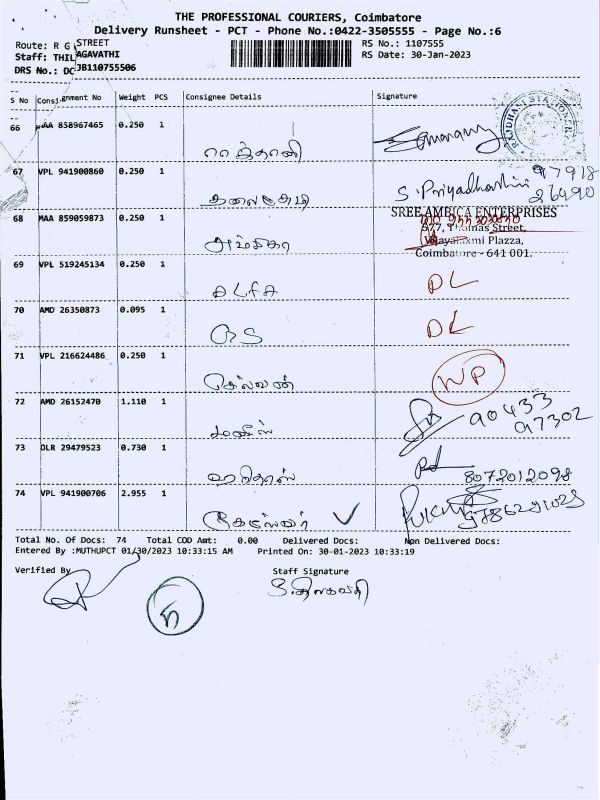 THE PROFESSIONAL COURIERS, Coimbatore
Delivery Runsheet - PCT - Phone No.:0422-3505555 - Page No.:6
Route: R G STREET
RS No.: 1107555
Staff: THIL AGAVATHI
RS Date: 30-Jan-2023
DRS No.: DC JB110755506
S No Consignment No Weight PCS Consignee Details Signature
66 MAA 858967465 0.250 1
67 VPL 941900860 0.250 1 கலைச்செல்வி S. Priyadharshini 97918
26490
68 MAA 859059873 0.250 1 அம்பிகா
SREE AMBICA ENTERPRISES
577, Thomas Street,
Vijayalaxmi Plazza,
Coimbatore - 641 001.
69 VPL 519245134 0.250 1 DL
70 AMD 26350873 0.095 1 DL
71 VPL 216624486 0.250 1 செல்வன் WP
72 AMD 26152470 1.110 1 90433
97302
73 DLR 29479523 0.730 1 ஹரிதாஸ் 8072012098
74 VPL 941900706 2.955 1
Total No. Of Docs: 74 Total COD Amt: 0.00 Delivered Docs: Non Delivered Docs:
Entered By :MUTHUPCT 01/30/2023 10:33:15 AM Printed On: 30-01-2023 10:33:19
Verified By
Staff Signature
S.திலகவதி